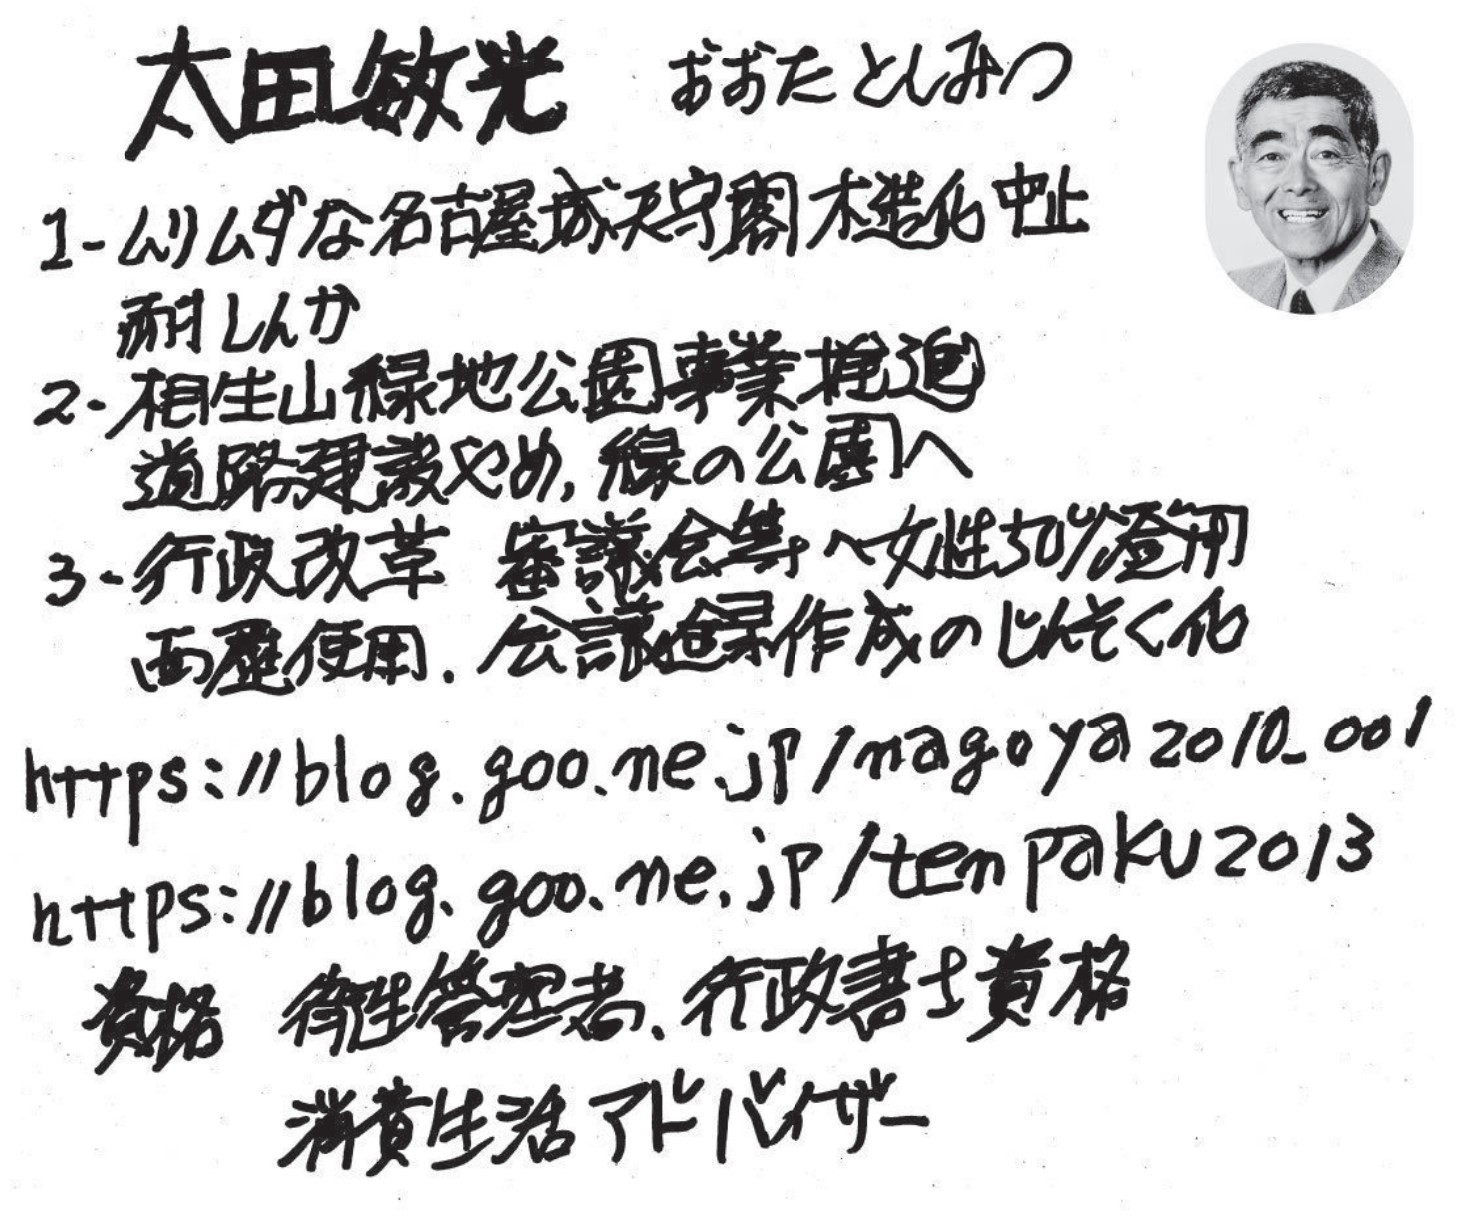 太田敏光 おおたとしみつ
1-ムリムダな名古屋城天守閣木造化中止
耐しんか
2-相生山緑地公園事業推進
道路建設やめ,緑の公園へ
3-行政改革 審議会等へ女性50%登用
西歴使用.会議録作成のじんそく化
https://blog.goo.ne.jp/nagoya2010_001
https://blog.goo.ne.jp/tenpaku2013
資格 衛生管理者、行政書士資格
消費生活アドバイザー